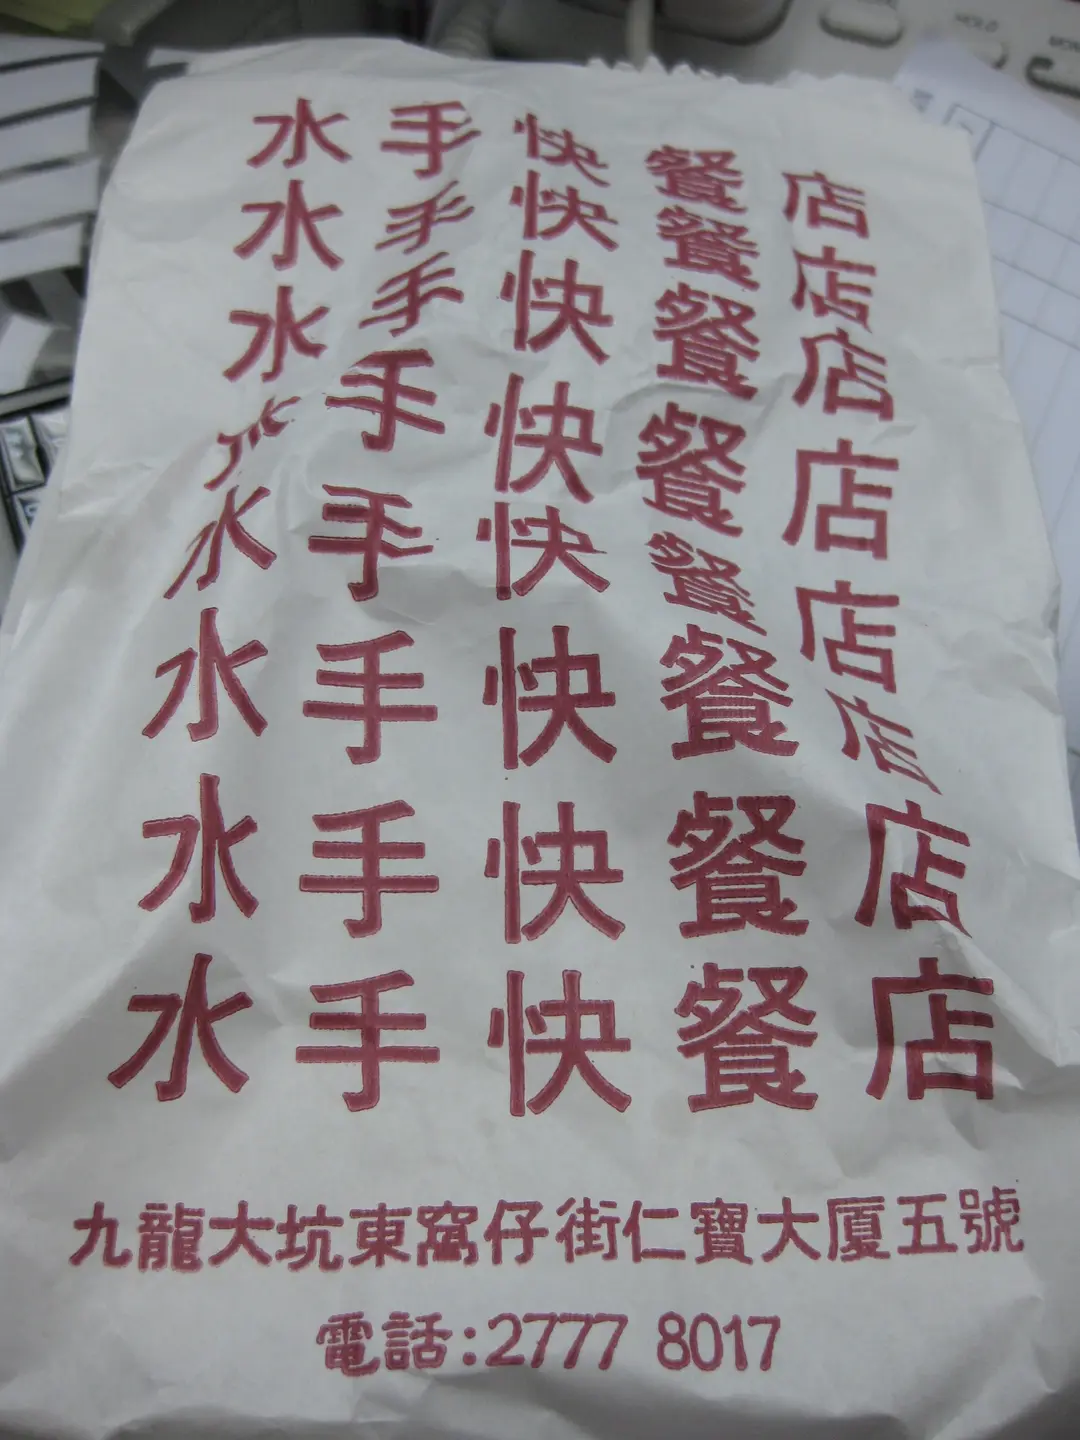 HOLD
水手快餐店
水手快餐店
水手快餐店
水手快餐店
水手快餐店
水手快餐店
水手快餐店
水手快餐店
九龍大坑東窩仔街仁寶大厦五號
電話:2777 8017